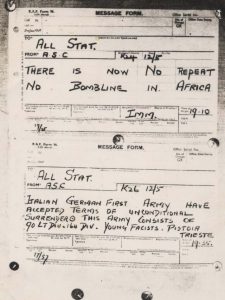 MESSAGE FORM.
ALL STAT.
FROM A.S.C K24 12/5
THERE IS NOW NO REPEAT
NO BOMBLINE IN AFRICA
Imm. 19.10
MESSAGE FORM.
ALL STAT.
FROM A.S.C K26 12/5
ITALIAN GERMAN FIRST ARMY HAVE
ACCEPTED TERMS OF UNCONDITIONAL
SURRENDER THIS ARMY CONSISTS OF
90 LT DIV. 164 DIV. YOUNG FACISTS. PISTOIA
TRIESTE